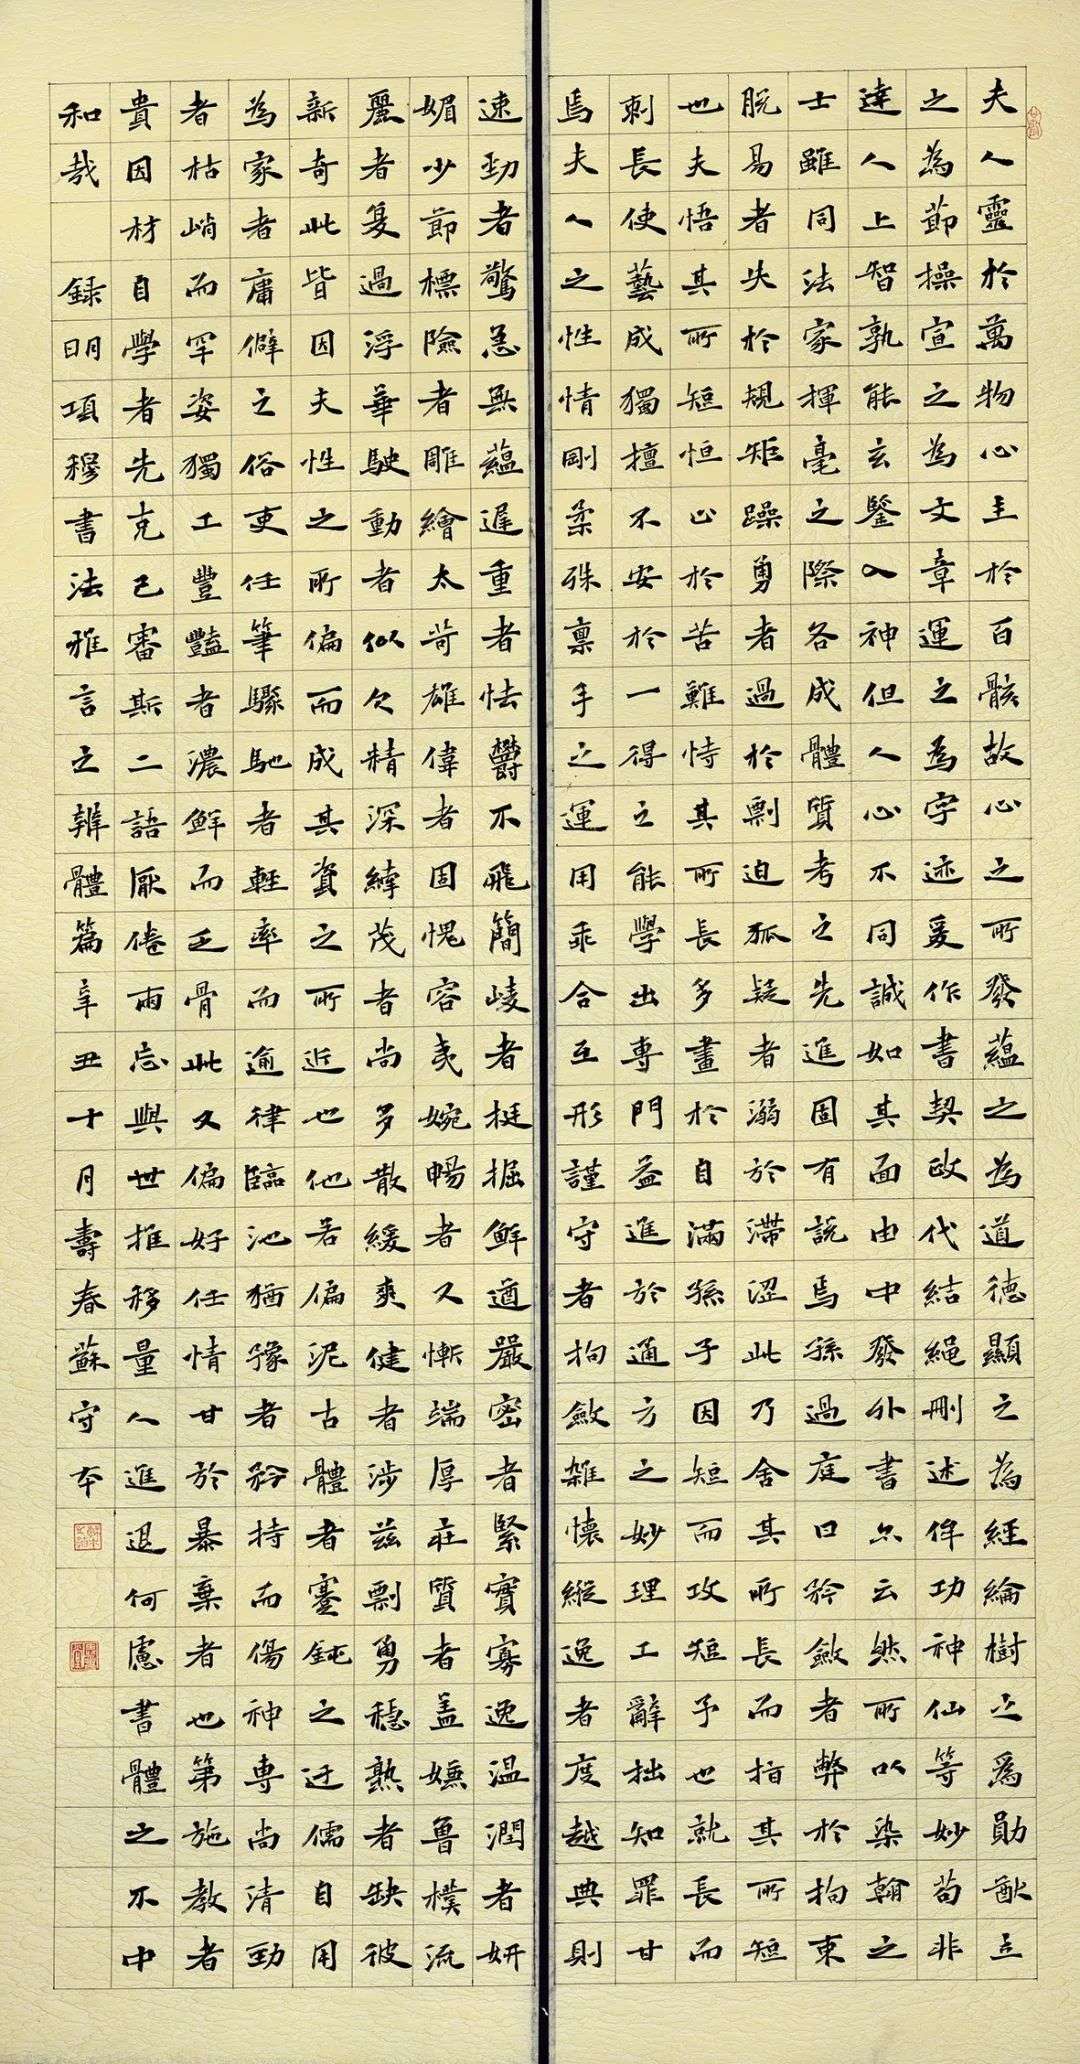 夫人靈於萬物心主於百骸故心之所發蘊之為道德顯之為經綸樹之為勛猷立
之為節操宣之為文章運之為字迹爰作書契政代結繩刪述侔功神仙等妙苟非
達人上智孰能玄鑒入神但人心不同誠如其面由中發外書亦云然所以染翰之
士雖同法家揮毫之際各成體質考之先進固有說焉孫過庭曰矜斂者弊於拘束
脫易者失於規矩躁勇者過於剽迫狐疑者溺於滯涩此乃舍其所長而指其所短
也夫悟其所短恒止於苦難恃其所長多畫於自滿孫子因短而攻短予也就長而
刺長使藝成獨擅不安於一得之能學出專門益進於通方之妙理工辭拙知罪甘
焉夫人之性情剛柔殊稟手之運用乖合互形謹守者拘斂雜懷縱逸者度越典則
速勁者驚急無蘊遲重者怯鬱不飛簡峻者挺掘鮮遒嚴密者緊實寡逸溫潤者妍
媚少節標險者雕繪太苛雄偉者固愧容夷婉暢者又慚端厚莊質者蓋嫌魯樸流
麗者复過浮華駛動者似欠精深緯茂者尚多散緩爽健者涉兹剽勇穩熟者缺彼
新奇此皆因夫性之所偏而成其資之所近也他若偏泥古體者蹇鈍之迂儒自用
為家者庸僻之俗吏任筆驟馳者輕率而逾律臨池猶豫者矜持而傷神専尚清勁
者枯峭而罕姿獨工豐豔者濃鮮而乏骨此又偏好任情甘於暴棄者也第施教者
貴因材自學者先克己審斯二語厭倦兩忘與世推移量人進退何慮書體之不中
和哉 録明項穆書法雅言之辨體篇辛丑十月壽春蘇守本